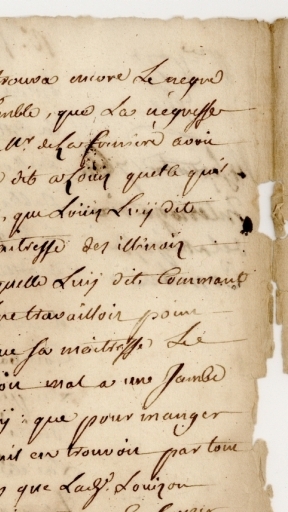 trouva encore Le negre
emble, que La négresse
Mr de La
avoit
dit a Louis quelle qu'il
, que Louis Luy dit
maitresse des illinois
quelle Luy dit Comment
ne travailloit pour
que sa maitresse Le
oit mal a une Jambe
y: que pour manger
il en trouvoit par tout
que Ladt. Louizon